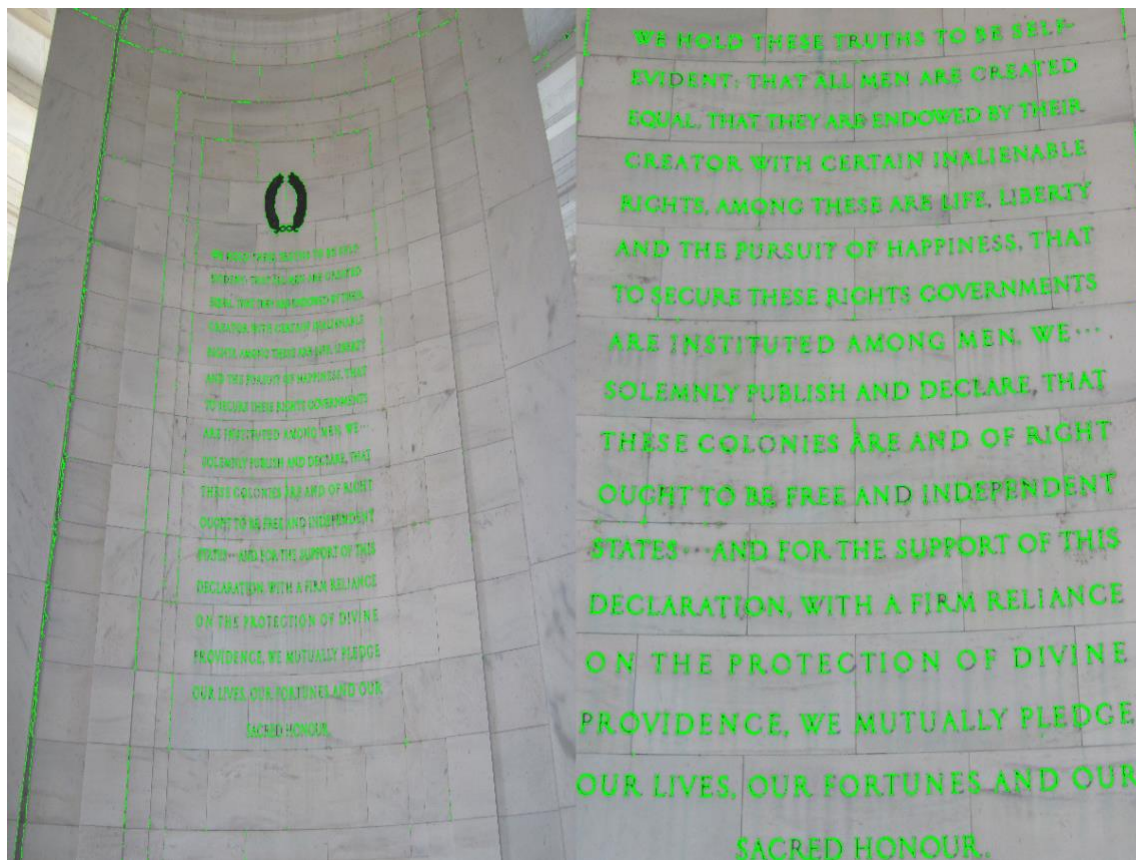 WE HOLD THESE TRUTHS TO BE SELF-
EVIDENT: THAT ALL MEN ARE CREATED
EQUAL, THAT THEY ARE ENDOWED BY THEIR
CREATOR WITH CERTAIN INALIENABLE
RIGHTS, AMONG THESE ARE LIFE, LIBERTY
AND THE PURSUIT OF HAPPINESS, THAT
TO SECURE THESE RIGHTS GOVERNMENTS
ARE INSTITUTED AMONG MEN. WE···
SOLEMNLY PUBLISH AND DECLARE, THAT
THESE COLONIES ARE AND OF RIGHT
OUGHT TO BE FREE AND INDEPENDENT
STATES···AND FOR THE SUPPORT OF THIS
DECLARATION, WITH A FIRM RELIANCE
ON THE PROTECTION OF DIVINE
PROVIDENCE, WE MUTUALLY PLEDGE
OUR LIVES, OUR FORTUNES AND OUR
SACRED HONOUR.
WE HOLD THESE TRUTHS TO BE SELF-
EVIDENT: THAT ALL MEN ARE CREATED
EQUAL, THAT THEY ARE ENDOWED BY THEIR
CREATOR WITH CERTAIN INALIENABLE
RIGHTS, AMONG THESE ARE LIFE, LIBERTY
AND THE PURSUIT OF HAPPINESS, THAT
TO SECURE THESE RIGHTS GOVERNMENTS
ARE INSTITUTED AMONG MEN. WE···
SOLEMNLY PUBLISH AND DECLARE, THAT
THESE COLONIES ARE AND OF RIGHT
OUGHT TO BE FREE AND INDEPENDENT
STATES···AND FOR THE SUPPORT OF THIS
DECLARATION, WITH A FIRM RELIANCE
ON THE PROTECTION OF DIVINE
PROVIDENCE, WE MUTUALLY PLEDGE
OUR LIVES, OUR FORTUNES AND OUR
SACRED HONOUR.